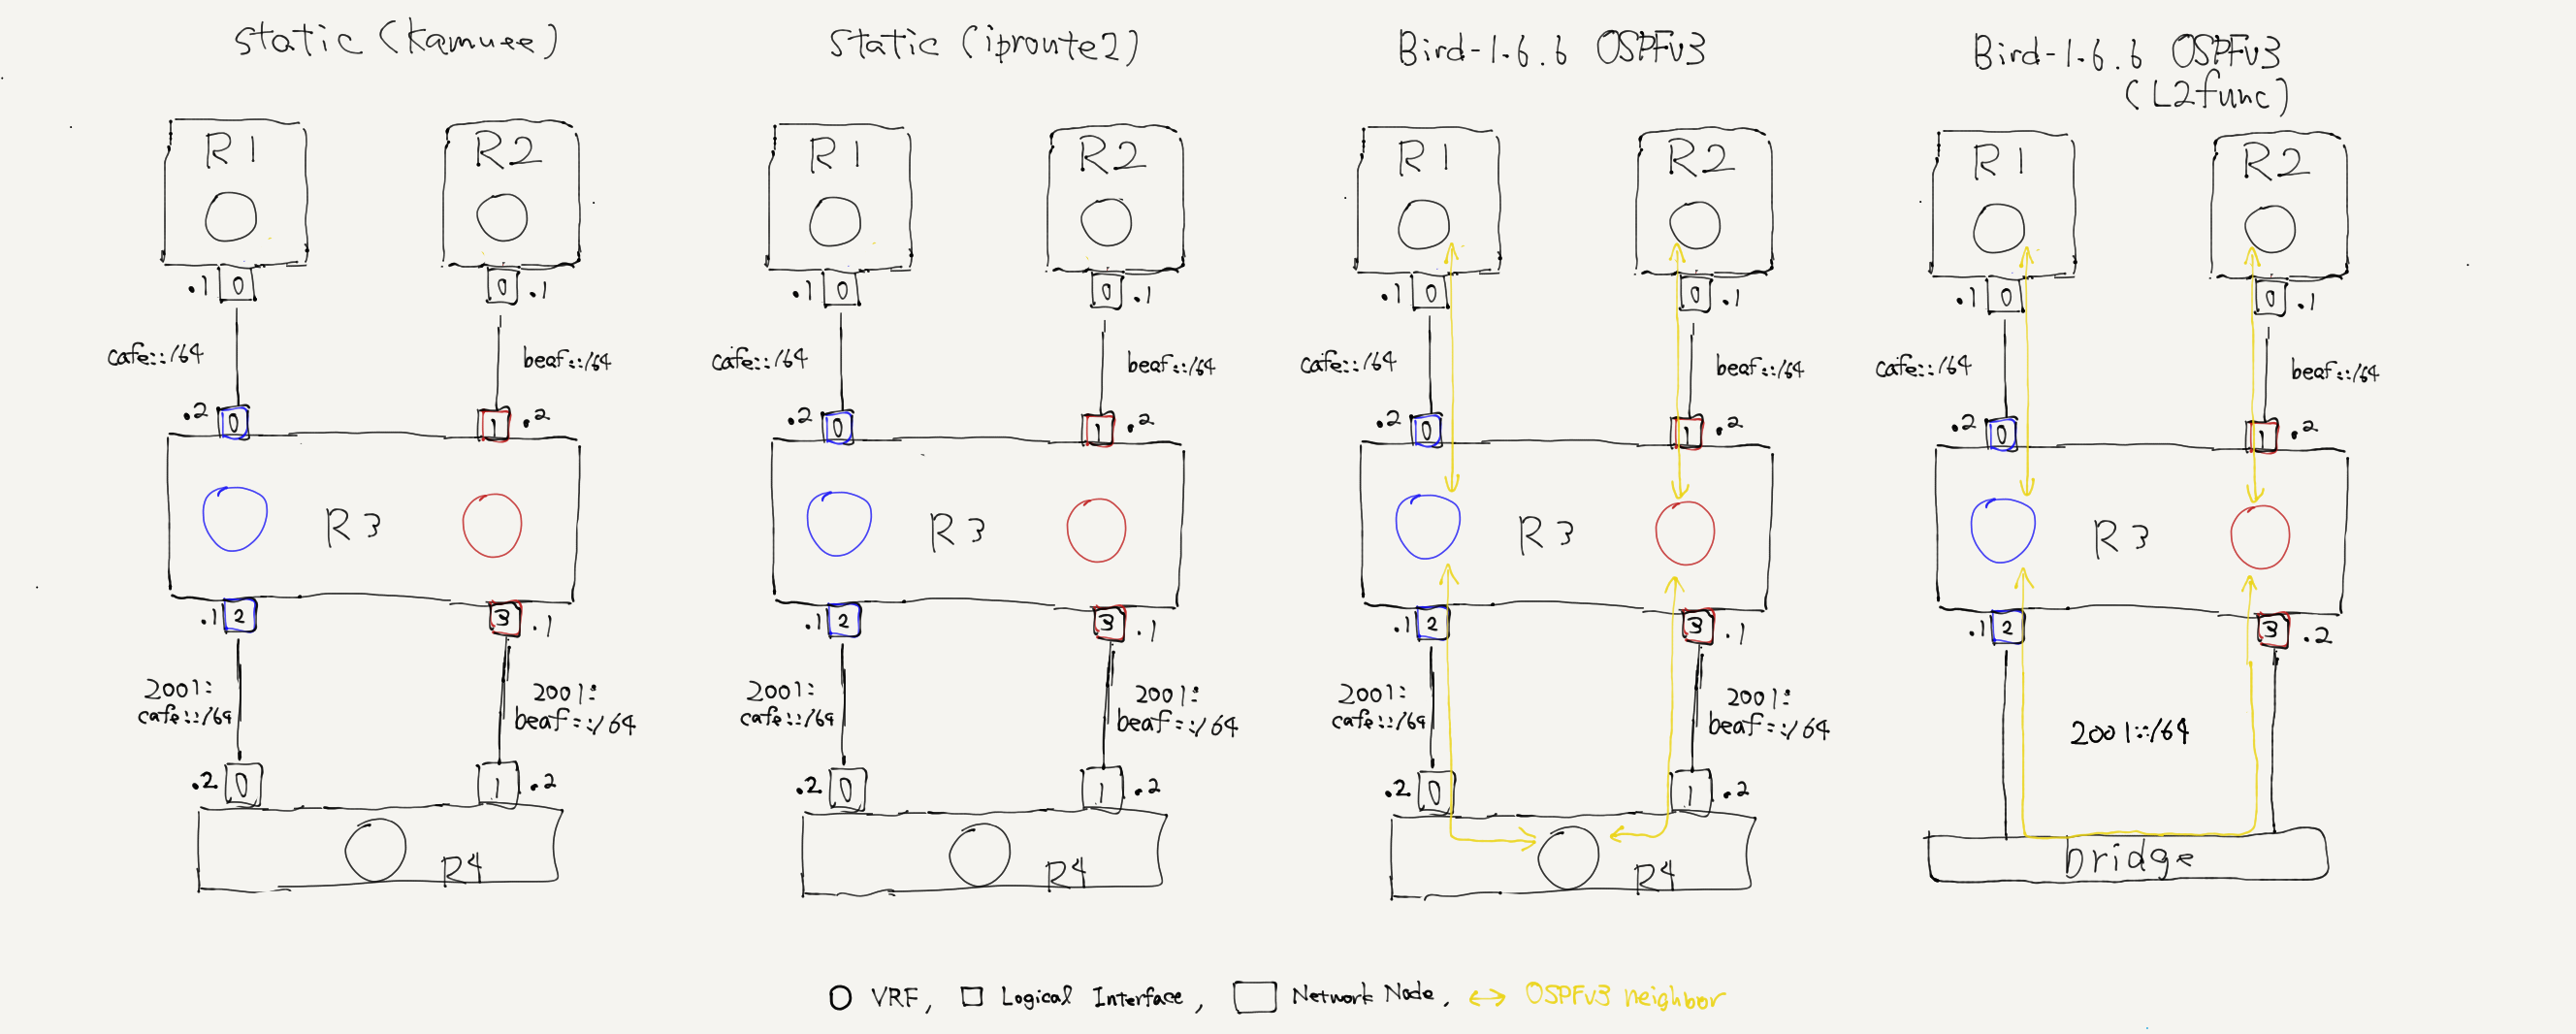 static (kamuee)
R1
R2
.1 0
0 .1
cafe::/64
beaf::/64
.2 0
1 .2
R3
.1 2
3 .1
2001:
cafe::/64
2001:
beaf::/64
.2 0
1 .2
R4
static (iproute2)
R1
R2
.1 0
0 .1
cafe::/64
beaf::/64
.2 0
1 .2
R3
.1 2
3 .1
2001:
cafe::/64
2001:
beaf::/64
.2 0
1 .2
R4
Bird-1.6.6 OSPFv3
R1
R2
.1 0
0 .1
cafe::/64
beaf::/64
.2 0
1 .2
R3
.1 2
3 .1
2001:
cafe::/64
2001:
beaf::/64
.2 0
1 .2
R4
Bird-1.6.6 OSPFv3
(L2func)
R1
R2
.1 0
0 .1
cafe::/64
beaf::/64
.2 0
1 .2
R3
.1 2
3 .2
2001::/64
bridge
VRF, Logical Interface, Network Node, OSPFv3 neighbor